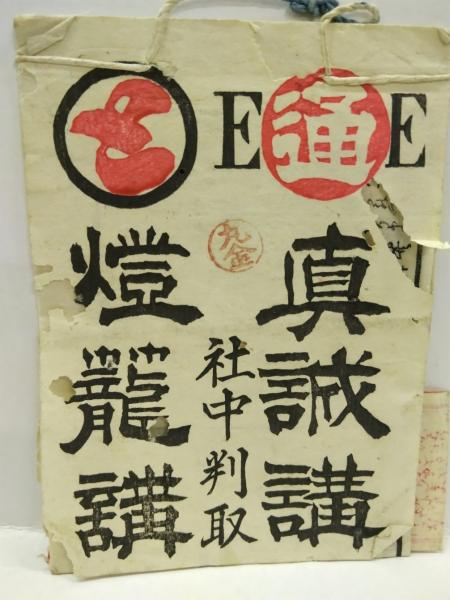 E 通 E
真誠講
丸金
社中判取
燈籠講